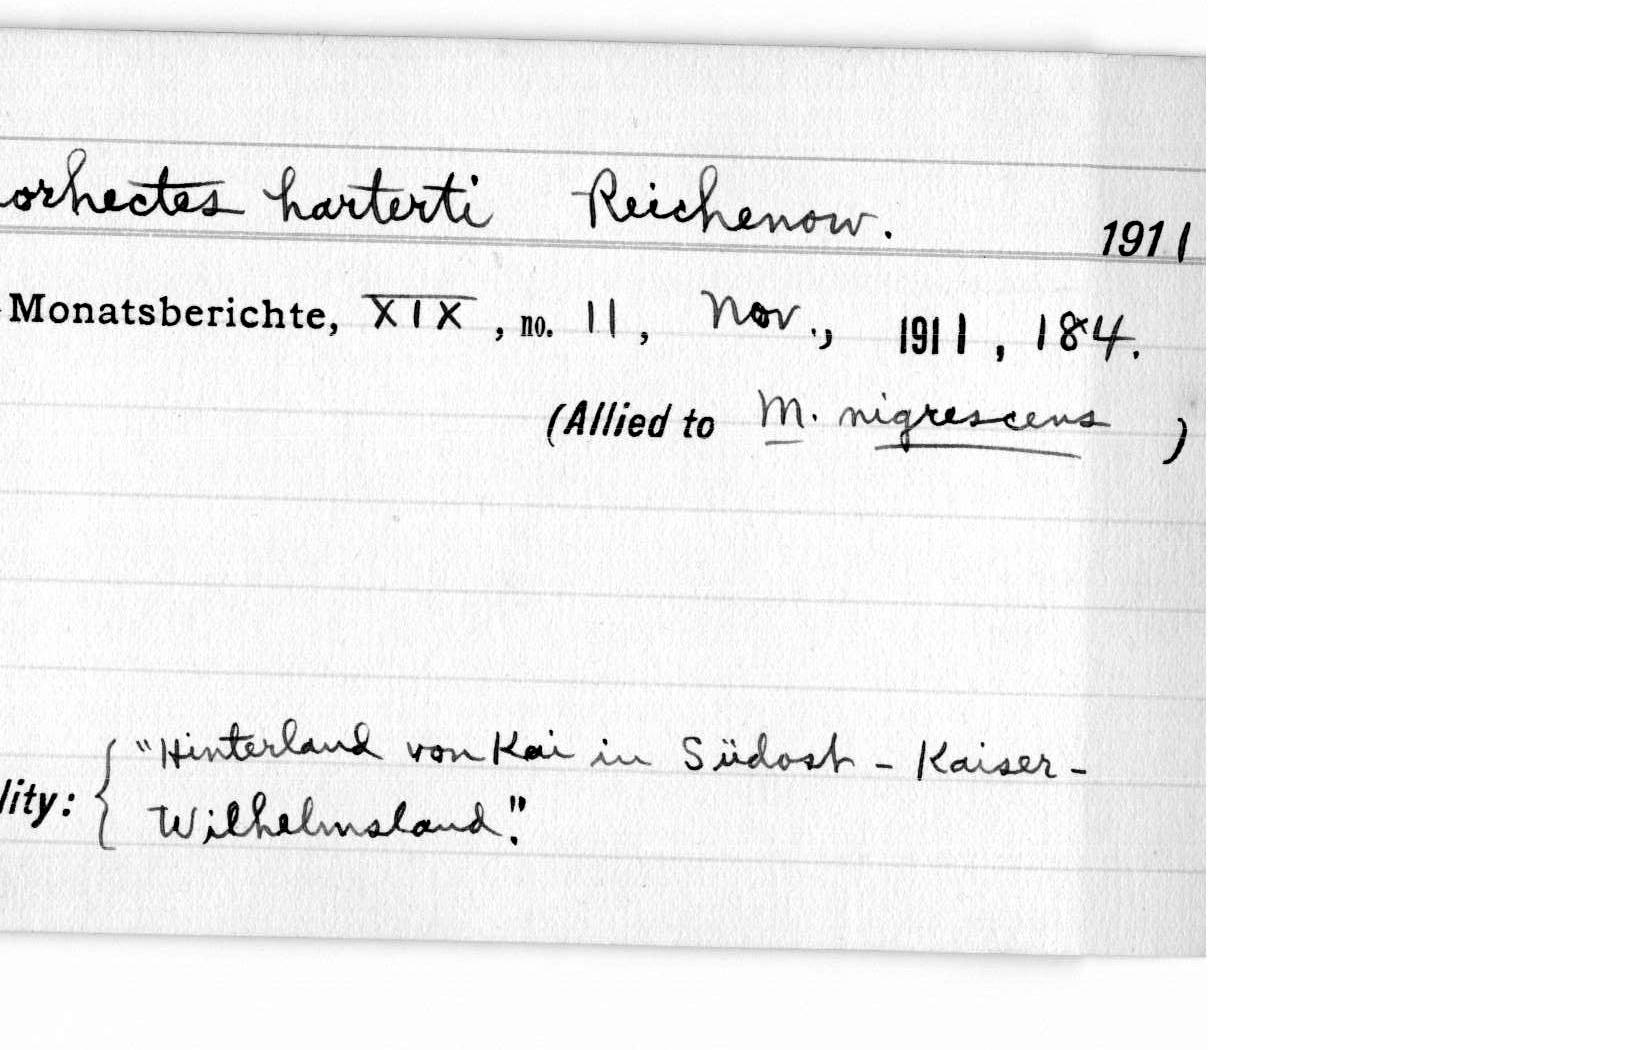 orhectes harterti Reichenow. 1911
Monatsberichte, XIX, no. 11, Nov., 1911, 184.
(Allied to M. nigrescens )
"Hinterland von Kai in Südost - Kaiser-
lity: { Wilhelmsland."